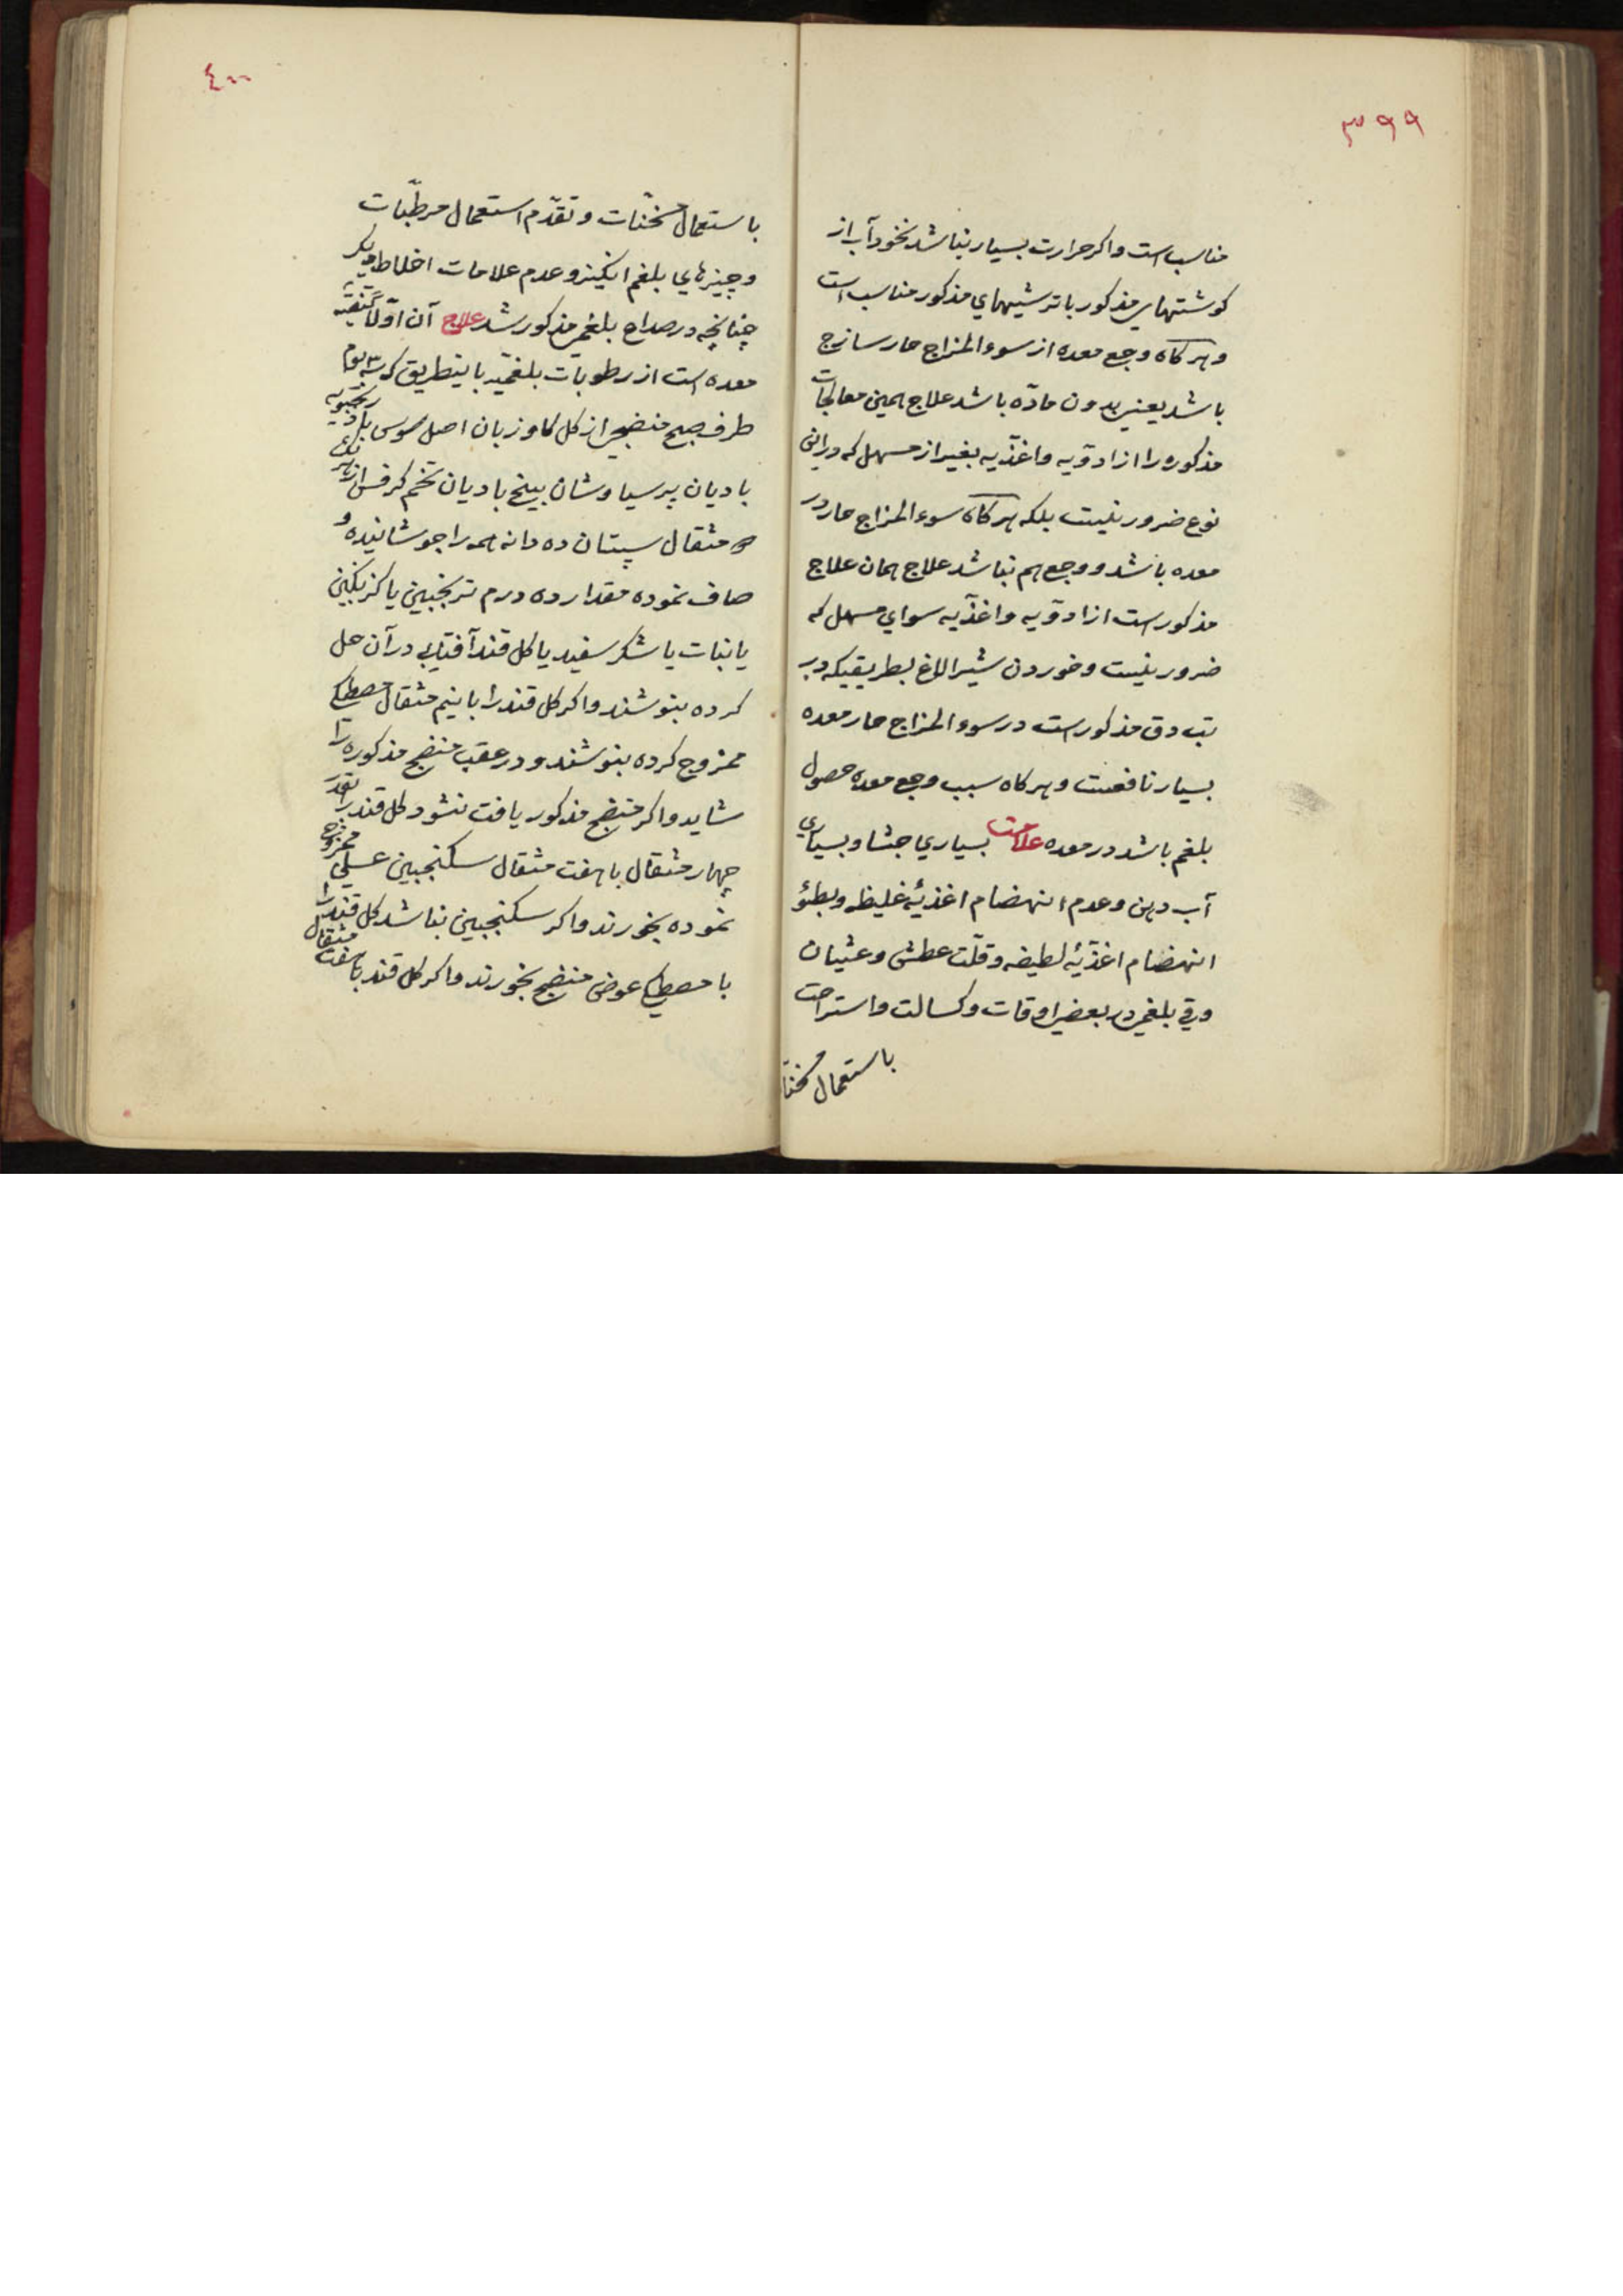 ۳۹۹
مناسب است واکر حرارت بسیار نباشد نخودآب از
کوشتهای مذکور با ترشیهای مذکور مناسب است
و هرکاه وجع معده از سوء المزاج حار سازج
باشد یعنی بدون مادّه باشد علاج همین معالجات
مذکوره را از ادویه واغذیه بغیر از مسهل که در این
نوع ضرور نیست بلکه هرکاه سوء المزاج حار در
معده باشد و وجع هم نباشد علاج همان علاج
مذکور است از ادویه واغذیه سوای مسهل که
ضرور نیست وخوردن شیر الاغ بطریقیکه در
تب دق مذکور است در سوء المزاج حار معده
بسیار نافعست و هرکاه سبب وجع معده حصول
بلغم باشد در معده علامت بسیاری جشا و بسیاری
آب دهن وعدم انهضام اغذیهٔ غلیظ وبطؤ
انهضام اغذیهٔ لطیفه وقلّت عطش وغثیان
وقی بلغمی در بعضی اوقات وکسالت واستراحت
باستعمال مسخنا
٤٠٠
باستعمال مسخّنات وتقدّم استعمال مرطّبات
وچیزهای بلغم انکیز وعدم علامات اخلاط دیکر
چنانچه در صداع بلغمی مذکور شد علاج آن اوّلاً تنقیه
معده است از رطوبات بلغمیّه باینطریق که سه یوم
طرف صبح منضجی از کل کاوزبان اصل سوس بادرنجبویه
بادیان پرسیاوشان بیخ بادیان تخم کرفس از هر یک
مثقال سپستان ده دانه همه را جوشانیده و
صاف نموده مقدار ده درم ترنجبین یا کزنکبین
یا نبات یا شکر سفید یا کل قند آفتابی در آن حل
کرده بنوشند واکر کل قند را با نیم مثقال مصطکی
ممزوج کرده بنوشند و در عقب منضج مذکوره را
شاید واکر منضج مذکور یافت نشود کل قند را بقدر
چهار مثقال با هفت مثقال سکنجبین عسلی ممزوج
نموده بخورند واکر سکنجبین نباشد کل قند را
با مصطکی عوض منضج بخورند واکر کل قند با هفت مثقال